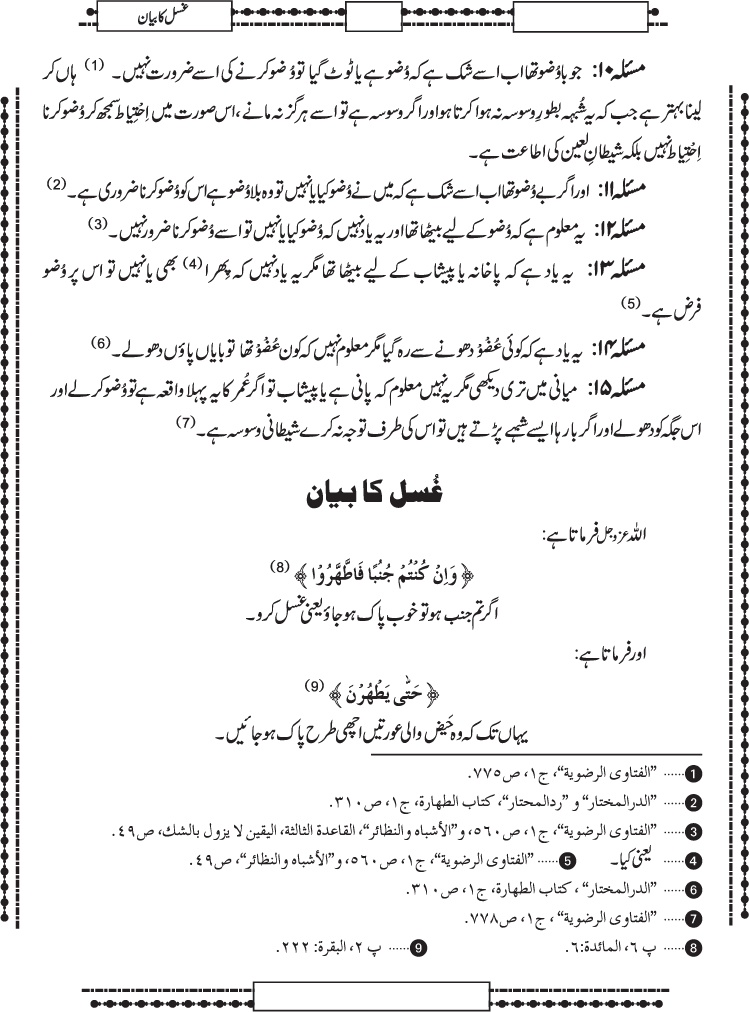 غسل کا بیان
مسئلہ ۱۰: جو باوُضو تھا اب اسے شک ہے کہ وُضو ہے یا ٹوٹ گیا تو وُضو کرنے کی اسے ضرورت نہیں۔ (1) ہاں کر
لینا بہتر ہے جب کہ یہ شُبہہ بطورِ وسوسہ نہ ہوا کرتا ہو اور اگر وسوسہ ہے تو اسے ہرگز نہ مانے، اس صورت میں اِحْتِیاط سمجھ کر وُضو کرنا
اِحْتِیاط نہیں بلکہ شیطانِ لعین کی اطاعت ہے۔
مسئلہ ۱۱: اور اگر بے وُضو تھا اب اسے شک ہے کہ میں نے وُضو کیا یا نہیں تو وہ بلا وُضو ہے اس کو وُضو کرنا ضروری ہے۔ (2)
مسئلہ ۱۲: یہ معلوم ہے کہ وُضو کے لیے بیٹھا تھا اور یہ یاد نہیں کہ وُضو کیا یا نہیں تو اسے وُضو کرنا ضرور نہیں۔ (3)
مسئلہ ۱۳: یہ یاد ہے کہ پاخانہ یا پیشاب کے لیے بیٹھا تھا مگر یہ یاد نہیں کہ پِھرا (4) بھی یا نہیں تو اس پر وُضو
فرض ہے۔ (5)
مسئلہ ۱۴: یہ یاد ہے کہ کوئی عُضْوْ دھونے سے رہ گیا مگر معلوم نہیں کہ کون عُضْوْ تھا تو بایاں پاؤں دھولے۔ (6)
مسئلہ ۱۵: میانی میں تری دیکھی مگر یہ نہیں معلوم کہ پانی ہے یا پیشاب تو اگر عُمر کا یہ پہلا واقعہ ہے تو وُضو کر لے اور
اس جگہ کو دھولے اور اگر بارہا ایسے شبہے پڑتے ہیں تو اس کی طرف توجہ نہ کرے شیطانی وسوسہ ہے۔ (7)
غُسل کا بیان
اللہ عزوجل فرماتا ہے:
﴿ وَاِنْ كُنْتُمْ جُنُبًا فَاطَّهَّرُوْا ﴾ (8)
اگر تم جنب ہو تو خوب پاک ہو جاؤ یعنی غسل کرو۔
اور فرماتا ہے:
﴿ حَتّٰى يَطْهُرْنَ ﴾ (9)
یہاں تک کہ وہ حَیض والی عورتیں اچھی طرح پاک ہو جائیں۔
1 ...... "الفتاوی الرضویة"، ج۱، ص۷۷۵.
2 ...... "الدرالمختار" و "ردالمحتار"، کتاب الطهارة، ج۱، ص۳۱۰.
3 ...... "الفتاوی الرضویة"، ج۱، ص۵۶۰، و"الأشباه والنظائر"، القاعدة الثالثة، اليقين لا يزول بالشك، ص۴۹.
4 ...... یعنی کیا۔ 5 ...... "الفتاوی الرضویة"، ج۱، ص۵۶۰، و"الأشباه والنظائر"، ص۴۹.
6 ...... "الدرالمختار" ، کتاب الطهارة، ج۱، ص۳۱۰.
7 ...... "الفتاوی الرضویة" ، ج۱، ص۷۷۸.
8 ...... پ ۶، المائدة:۶. 9 ...... پ ۲، البقرة: ۲۲۲.